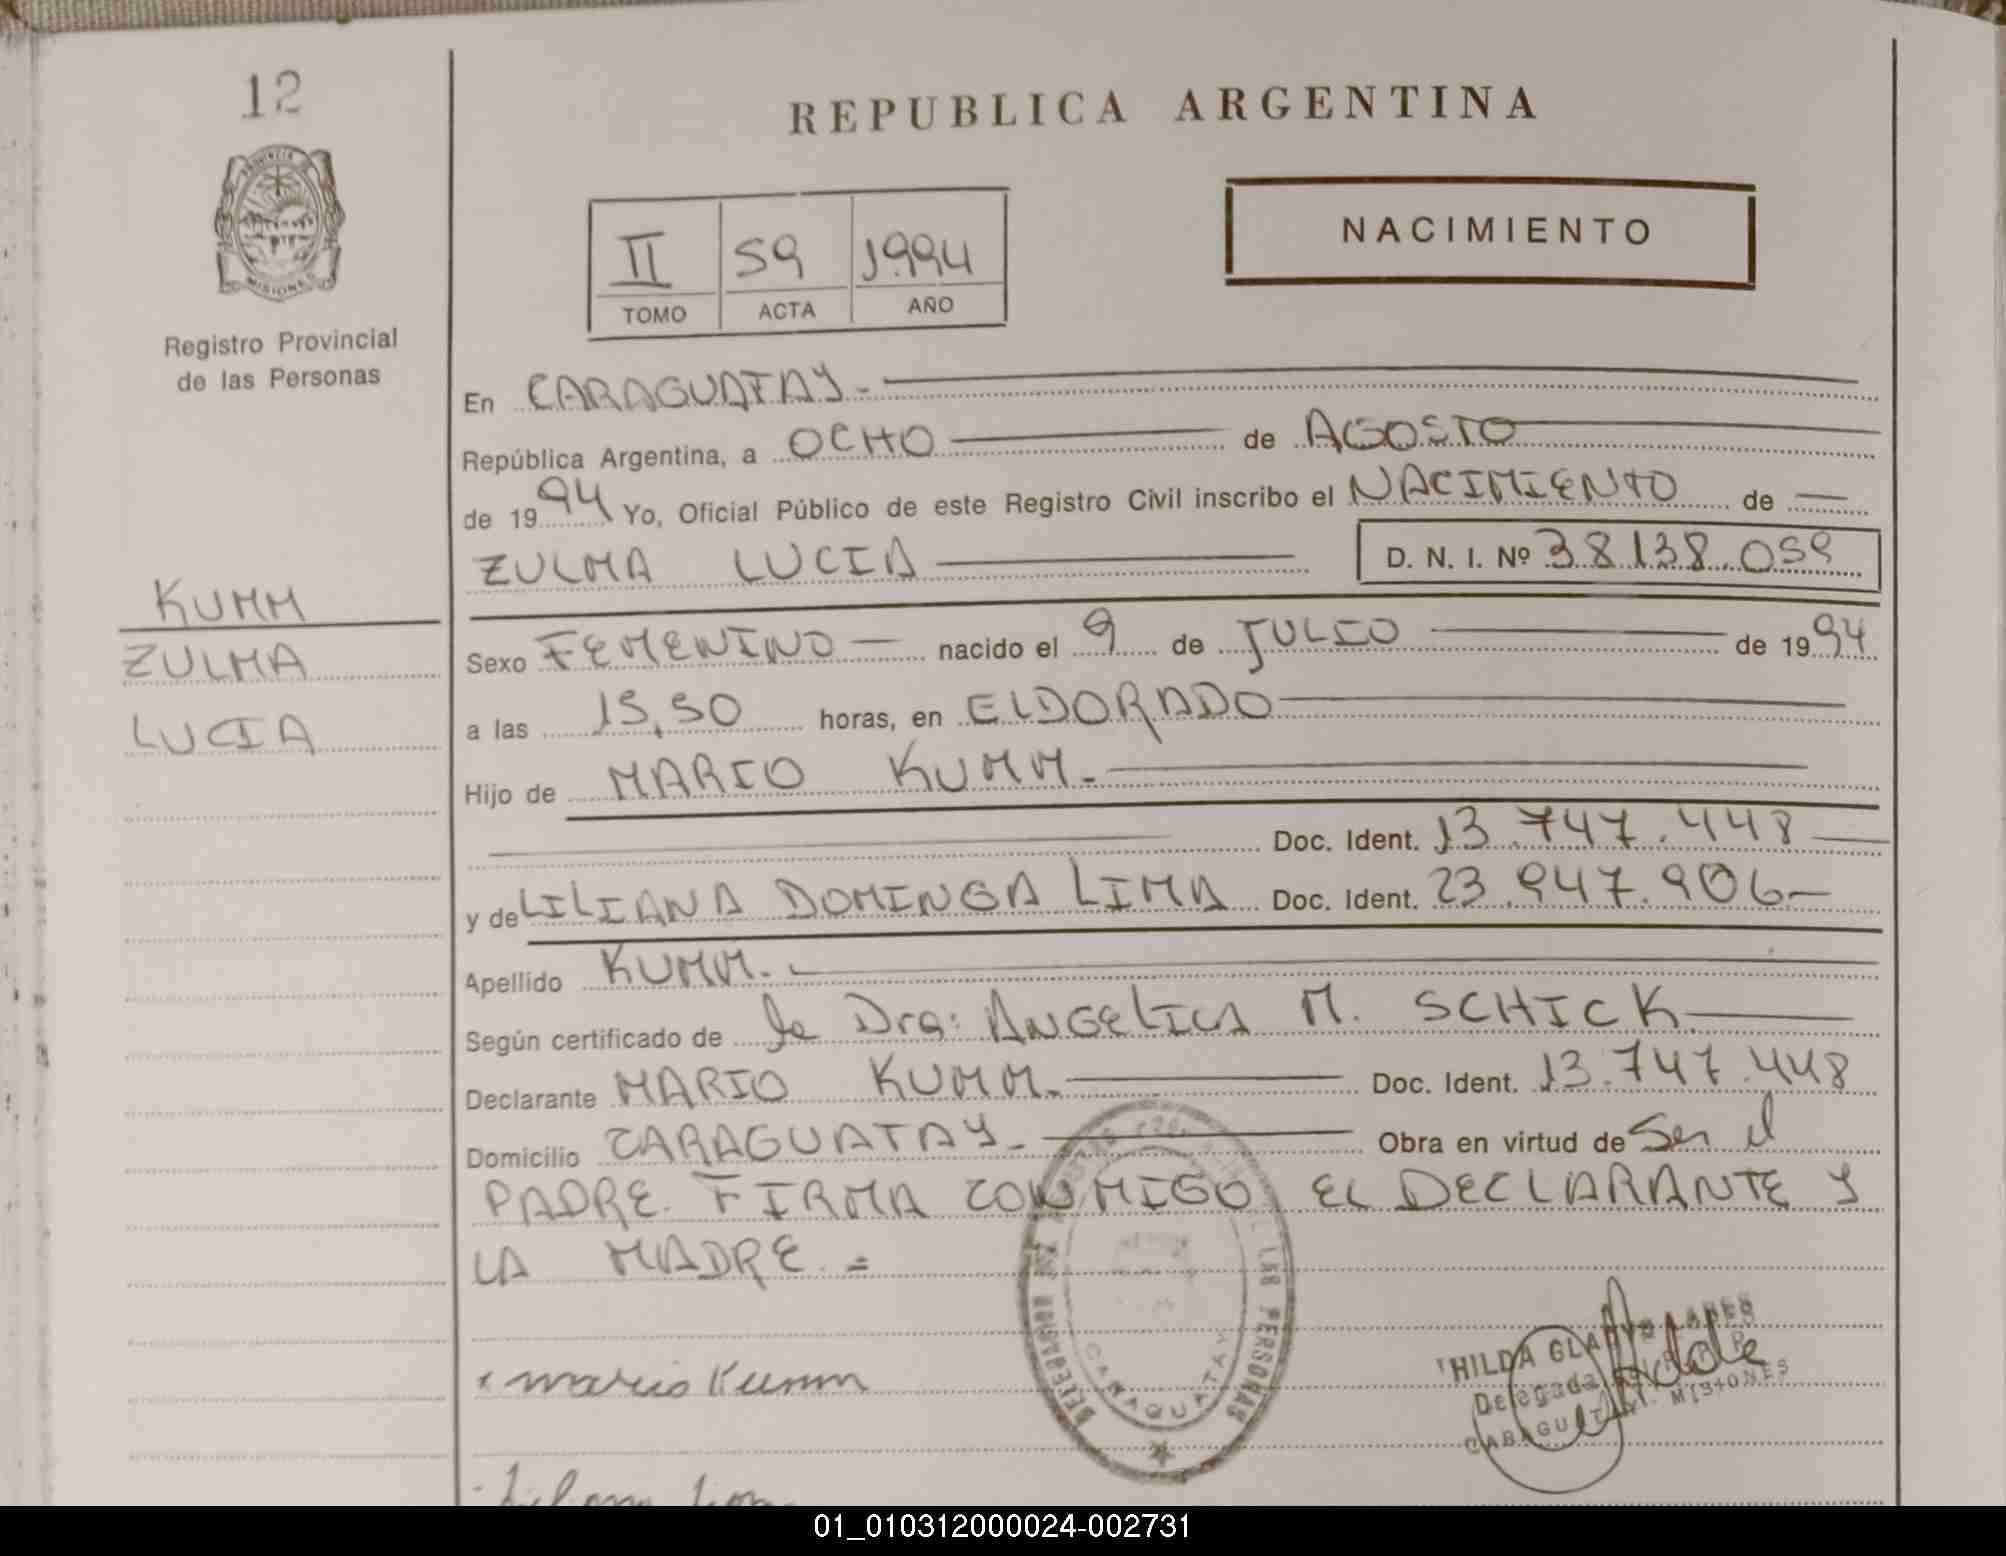 12
REPUBLICA ARGENTINA
PROVINCIA DE
MISIONES
Registro Provincial
de las Personas
II S9 1994
TOMO ACTA AÑO
NACIMIENTO
En CARAGUATAY.-
República Argentina, a OCHO de AGOSTO
de 1994 Yo, Oficial Público de este Registro Civil inscribo el NACIMIENTO de
ZULMA LUCIA D. N. I. Nº 38.138.059
KUMM
ZULMA
LUCIA
Sexo FEMENINO nacido el 9 de JULIO de 1994
a las 15,50 horas, en ELDORADO
Hijo de MARIO KUMM.-
Doc. Ident. 13.747.448
y de LILIANA DOMINGA LIMA Doc. Ident. 23.947.906-
Apellido KUMM.
Según certificado de la Dra: ANGELICA M. SCHICK
Declarante MARIO KUMM. Doc. Ident. 13.747.448
Domicilio CARAGUATAY.- Obra en virtud de ser el
PADRE. FIRMA CONMIGO EL DECLARANTE Y
LA MADRE.=
LAS PERSONAS
CARAGUATAY
mario Kumm
HILDA
Delegada
CARAGUATAY MISIONES
01_010312000024-002731